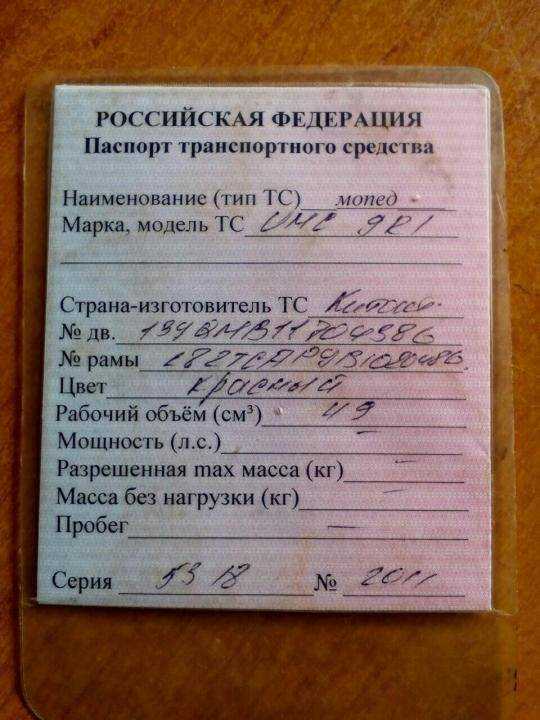 РОССИЙСКАЯ ФЕДЕРАЦИЯ
Паспорт транспортного средства
Наименование (тип ТС) мопед
Марка, модель ТС
Страна-изготовитель ТС Китай
№ дв.
№ рамы
Цвет красный
Рабочий объём (см³) 49
Мощность (л.с.) —
Разрешенная max масса (кг) —
Масса без нагрузки (кг) —
Пробег —
Серия 53 18 № 2011